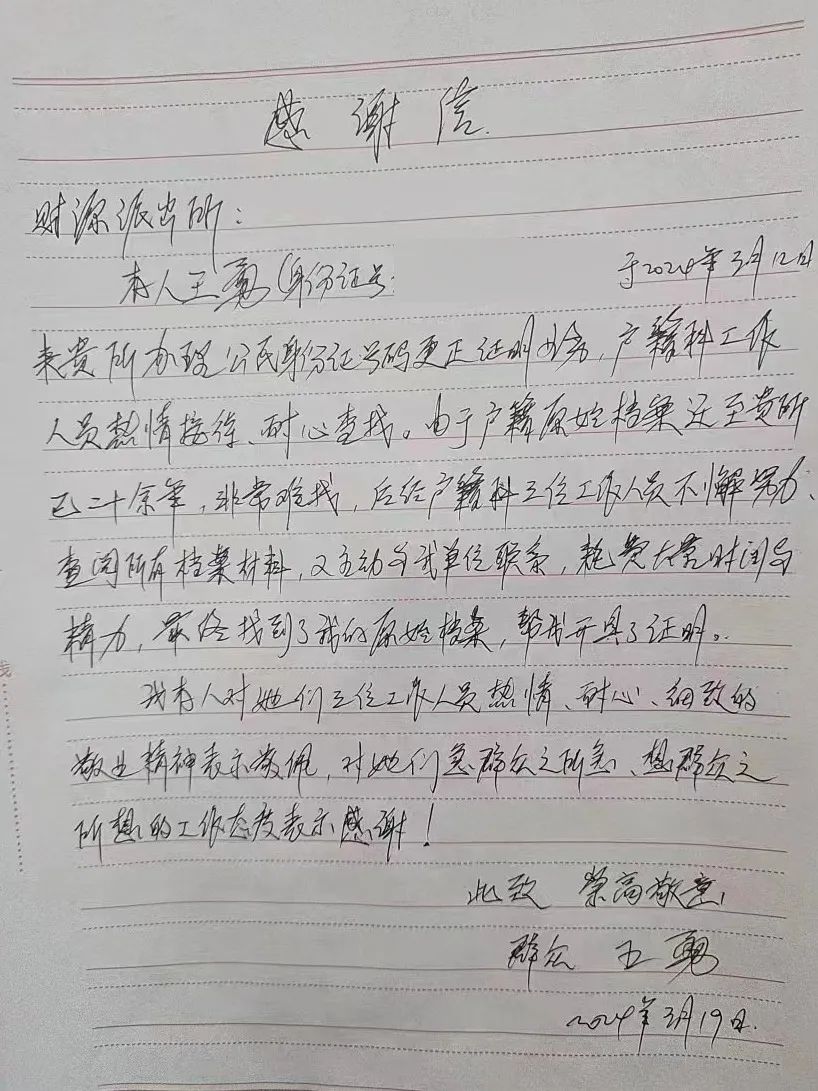 感谢信
财源派出所：
本人王勇（身份证号： 于2024年3月12日
来贵所办理公民身份证号码更正证明业务，户籍科工作
人员热情接待、耐心查找。由于户籍原始档案迁至贵所
已二十余年，非常难找，后经户籍科三位工作人员不懈努力、
查阅所有档案材料，又主动与我单位联系，耗费大量时间与
精力，最终找到了我的原始档案，帮我开具了证明。
我本人对她们三位工作人员热情、耐心、细致的
敬业精神表示敬佩，对她们急群众之所急、想群众之
所想的工作态度表示感谢！
此致 崇高敬意
群众 王勇
2024年3月19日.